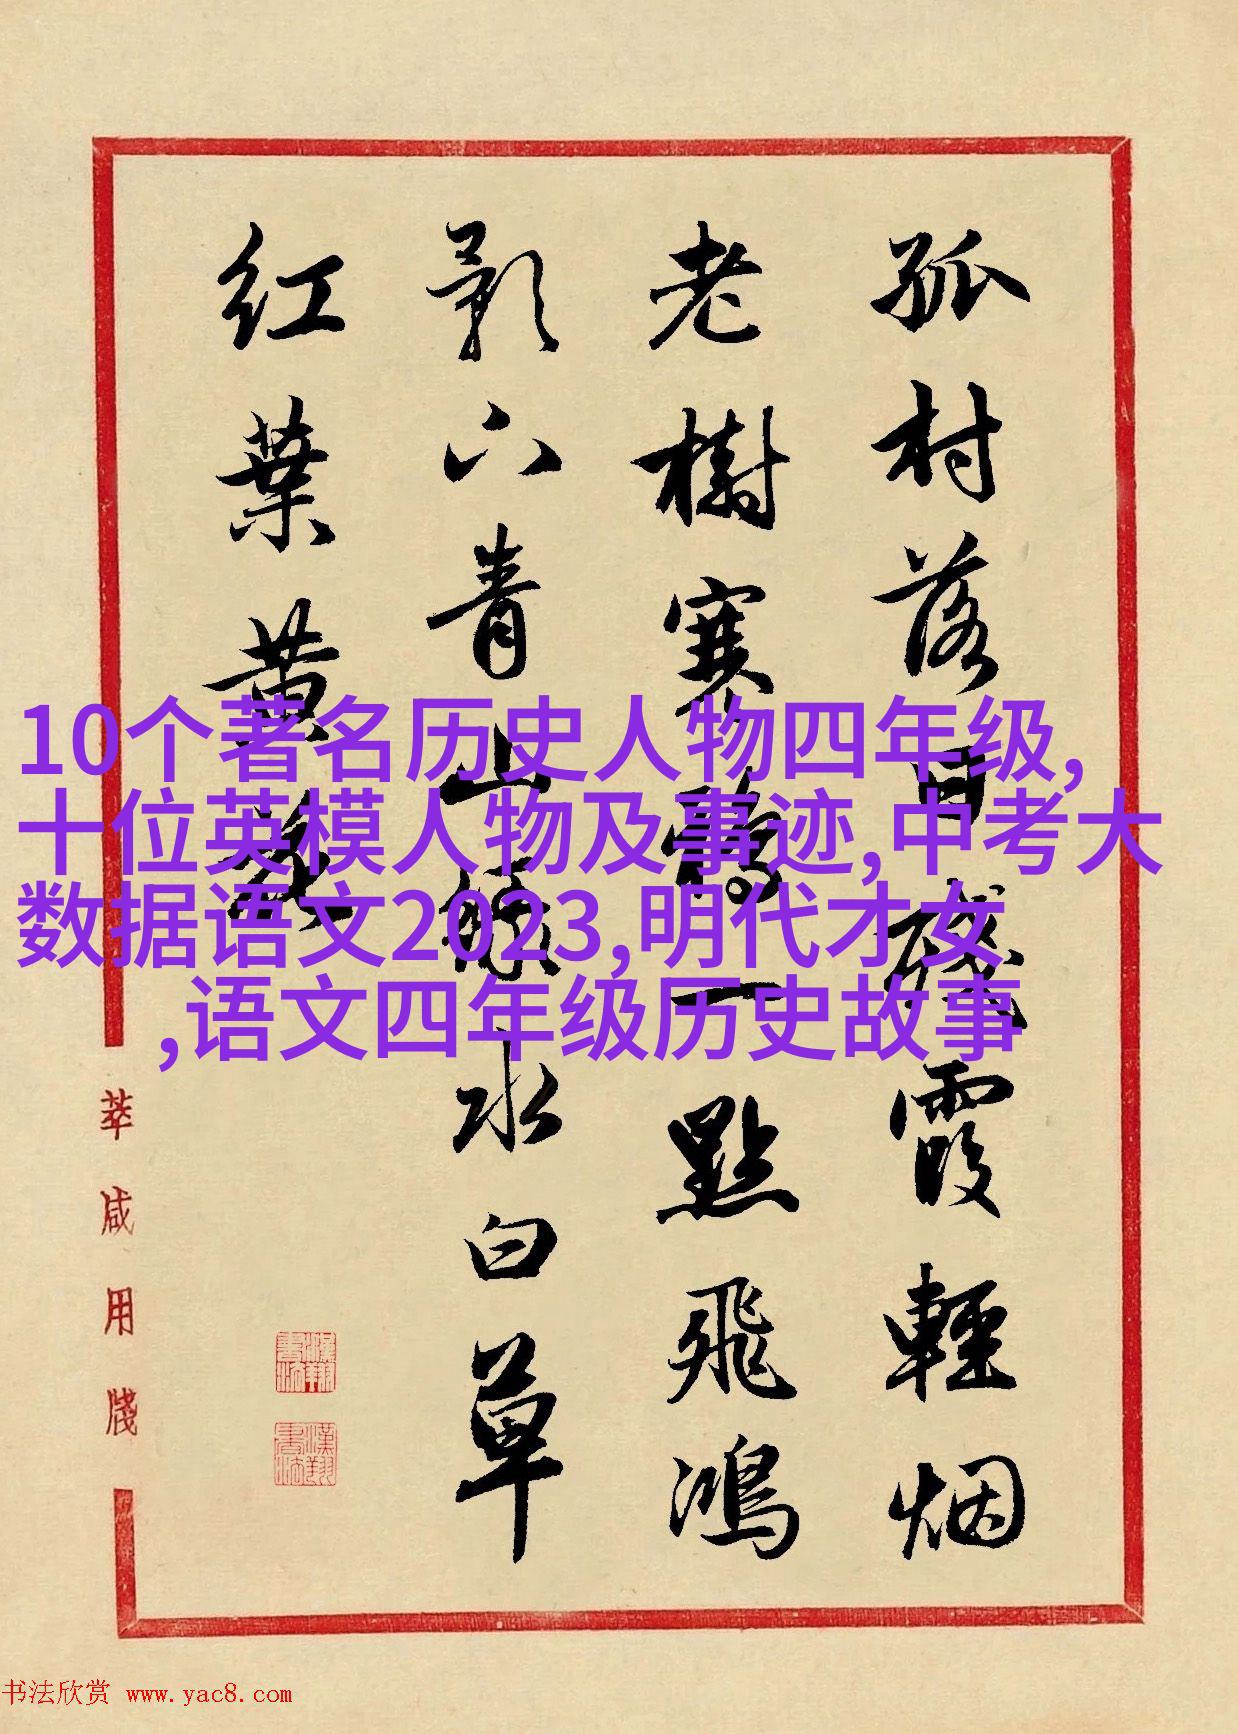 孤村落日殘霞輕烟
老樹寒鴉一點飛鴻
影下青山綠水白草
红葉黄花
10个著名历史人物四年级,
十位英模人物及事迹,中考大
数据语文2023,明代才女
,语文四年级历史故事
漢翔書法
漢翔書法
书法欣赏 www.yac8.com